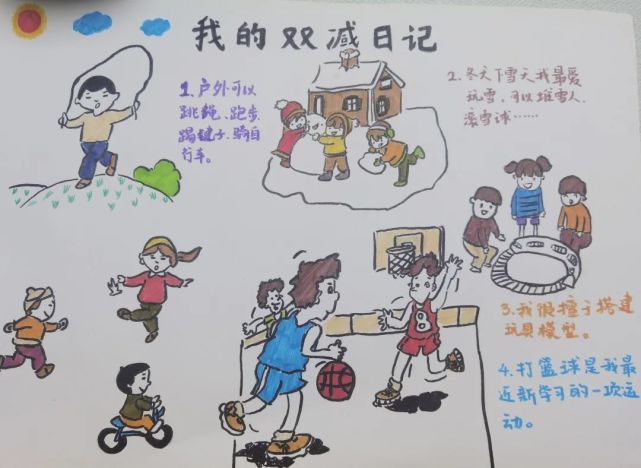 我的双减日记
1.户外可以
跳绳、跑步、
踢毽子、骑自
行车。
2.冬天下雪天我最爱
玩雪,可以堆雪人、
滚雪球……
3.我很擅于搭建
玩具模型。
4.打篮球是我最
近新学习的一项运
动。
8